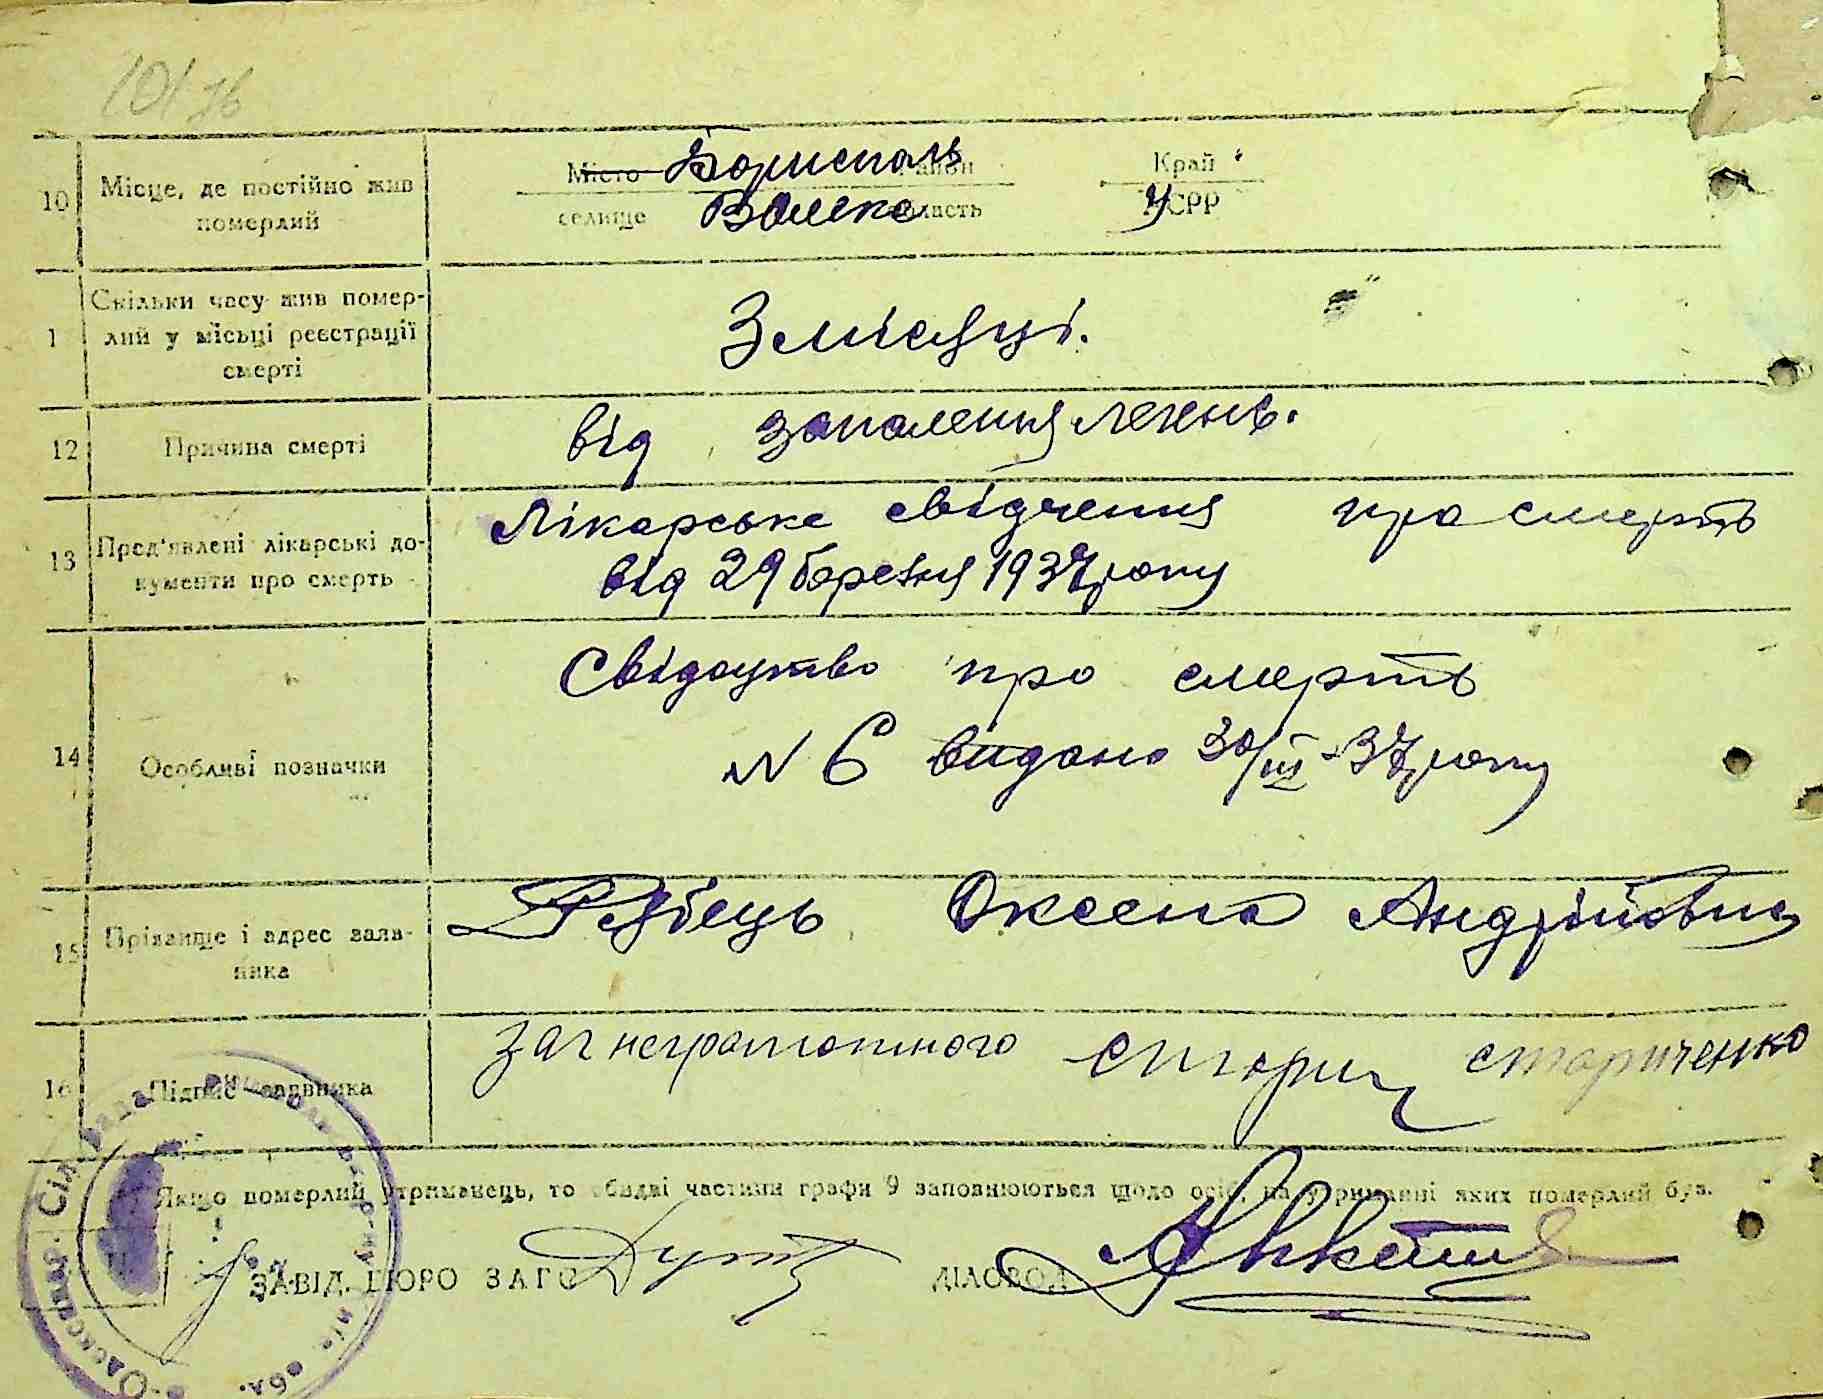 10 Місце, де постійно жив
померлий
Місто Бориспаль район Край
селище область УСРР
1 Скільки часу жив помер-
лий у місьці реєстрації
смерті
3 місяці.
12 Причина смерті від запалення легень.
13 Пред'явлені лікарські до-
кументи про смерть
Лікарське свідчення про смерть
від 29 березня 1937 року
14 Особливі позначки
Свідоцтво про смерть
N 6 видано 30/III-37 року
15 Прізвище і адрес заяв-
ника
Рябець Оксена Андріївна
16 Підпис заявника
за неграмотного Стариченко
Якщо померлий утриманець, то обидві частини графи 9 заповнюються щодо осіб, на утриманні яких померлий був.
ЗАВІД. БЮРО ЗАГС ДІЛОВОД
Сіл. Рада
обл.